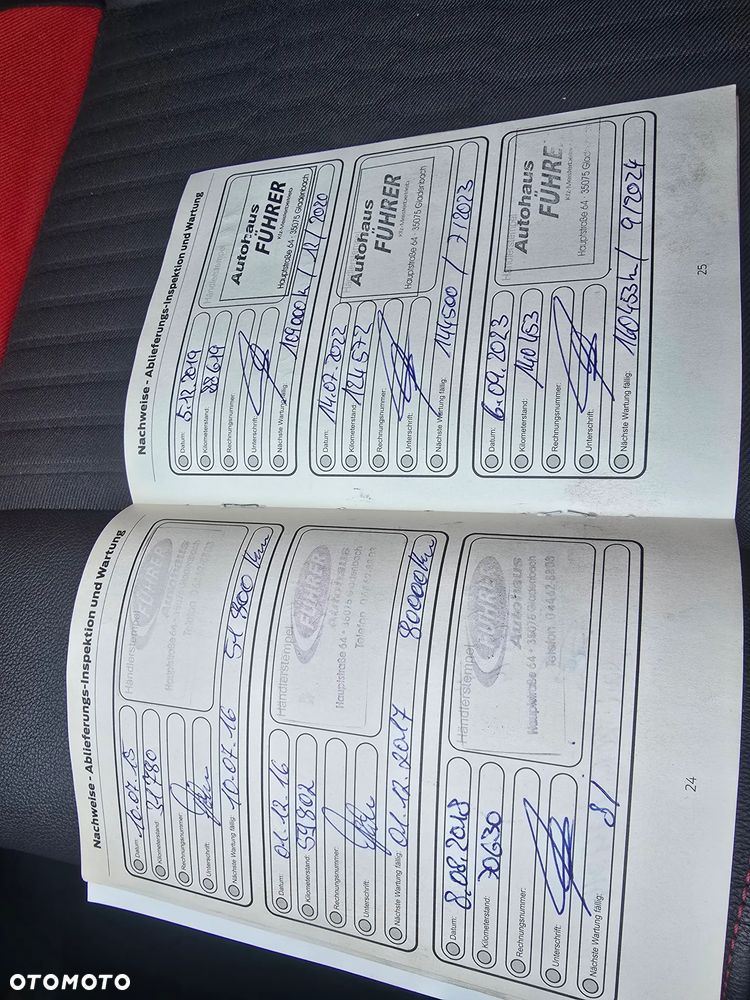 Nachweise - Ablieferungs-Inspektion und Wartung
Datum: 10.07.15
Kilometerstand: 31780
Rechnungsnummer:
Unterschrift:
Nächste Wartung fällig: 10.07.16 51 800 km
Händlerstempel
FÜHRER
Autohaus
Hauptstraße 64 · 35075 Gladenbach
Telefon
Datum: 01.12.16
Kilometerstand: 59802
Rechnungsnummer:
Unterschrift:
Nächste Wartung fällig: 01.12.2017 80000 km
Händlerstempel
FÜHRER
Autohaus
Hauptstraße 64 · 35075 Gladenbach
Telefon
Datum: 8.08.2018
Kilometerstand: 70630
Rechnungsnummer:
Unterschrift:
Nächste Wartung fällig:
Händlerstempel
FÜHRER
Autohaus
Hauptstraße 64 · 35075 Gladenbach
Telefon
24
Nachweise - Ablieferungs-Inspektion und Wartung
Datum: 5.12.2019
Kilometerstand: 88619
Rechnungsnummer:
Unterschrift:
Nächste Wartung fällig: 109000k / 12 / 2020
Händlerstempel
Autohaus
FÜHRER
Kfz-Meisterbetrieb
Hauptstraße 64 · 35075 Gladenbach
Datum: 14.07.2022
Kilometerstand: 124572
Rechnungsnummer:
Unterschrift:
Nächste Wartung fällig: 144500 / 7/2023
Autohaus
FÜHRER
Kfz-Meisterbetrieb
Hauptstraße 64 · 35075 Gladenbach
Datum: 6.09.2023
Kilometerstand: 140453
Rechnungsnummer:
Unterschrift:
Nächste Wartung fällig: 160453k / 9/2024
Händlerstempel
Autohaus
FÜHRE
Kfz-Meisterbetrieb
Hauptstraße 64 · 35075 Glad
25
OTOMOTO